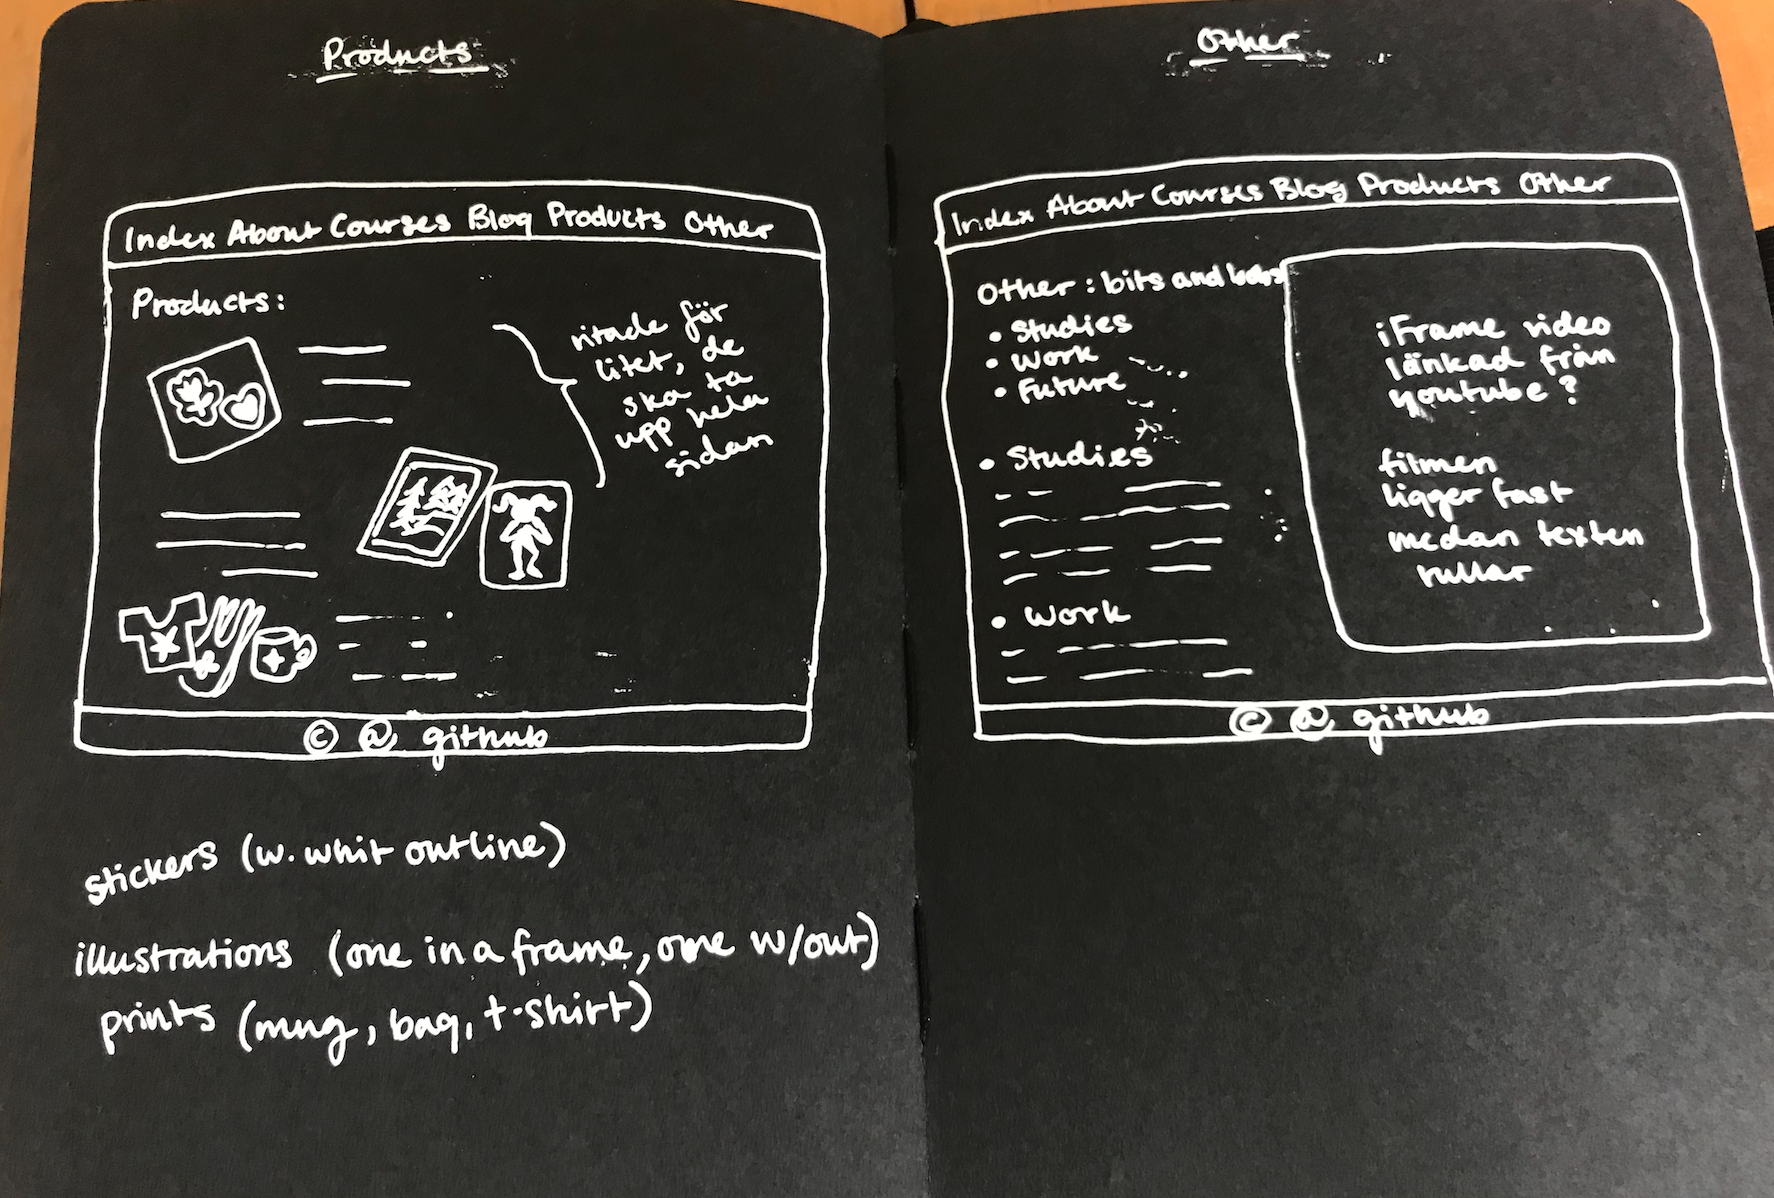 Products
Index About Courses Blog Products Other
Products:
ritade för
litet, de
ska ta
upp hela
sidan
© @ github
stickers (w. whit outline)
illustrations (one in a frame, one w/out)
prints (mug, bag, t-shirt)
Other
Index About Courses Blog Products Other
Other : bits and bobs
• Studies
• Work
• Future
• Studies
• Work
iFrame video
länkad från
youtube ?
filmen
ligger fast
medan texten
rullar
© @ github